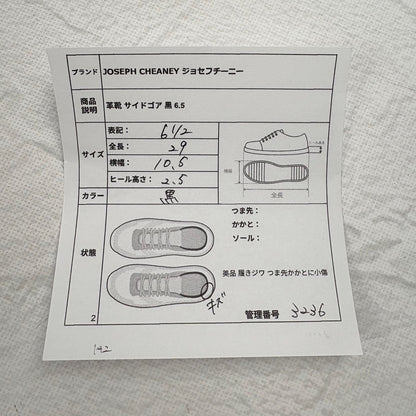 ブランド JOSEPH CHEANEY ジョセフチーニー
商品説明 革靴 サイドゴア 黒 6.5
サイズ
表記: 6 1/2
全長: 29
横幅: 10.5
ヒール高さ: 2.5
横幅
ヒール高さ
全長
カラー 黒
状態
つま先:
かかと:
ソール:
美品 履きジワ つま先かかとに小傷
キズ
2
管理番号 3236
142